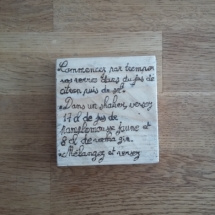 Commencez par tremper
vos verres dans du jus de
citron puis du sel.
Dans un shaker, versez
17 cl de jus de
pamplemousse jaune et
8 cl de vodka gin.
Mélangez et versez